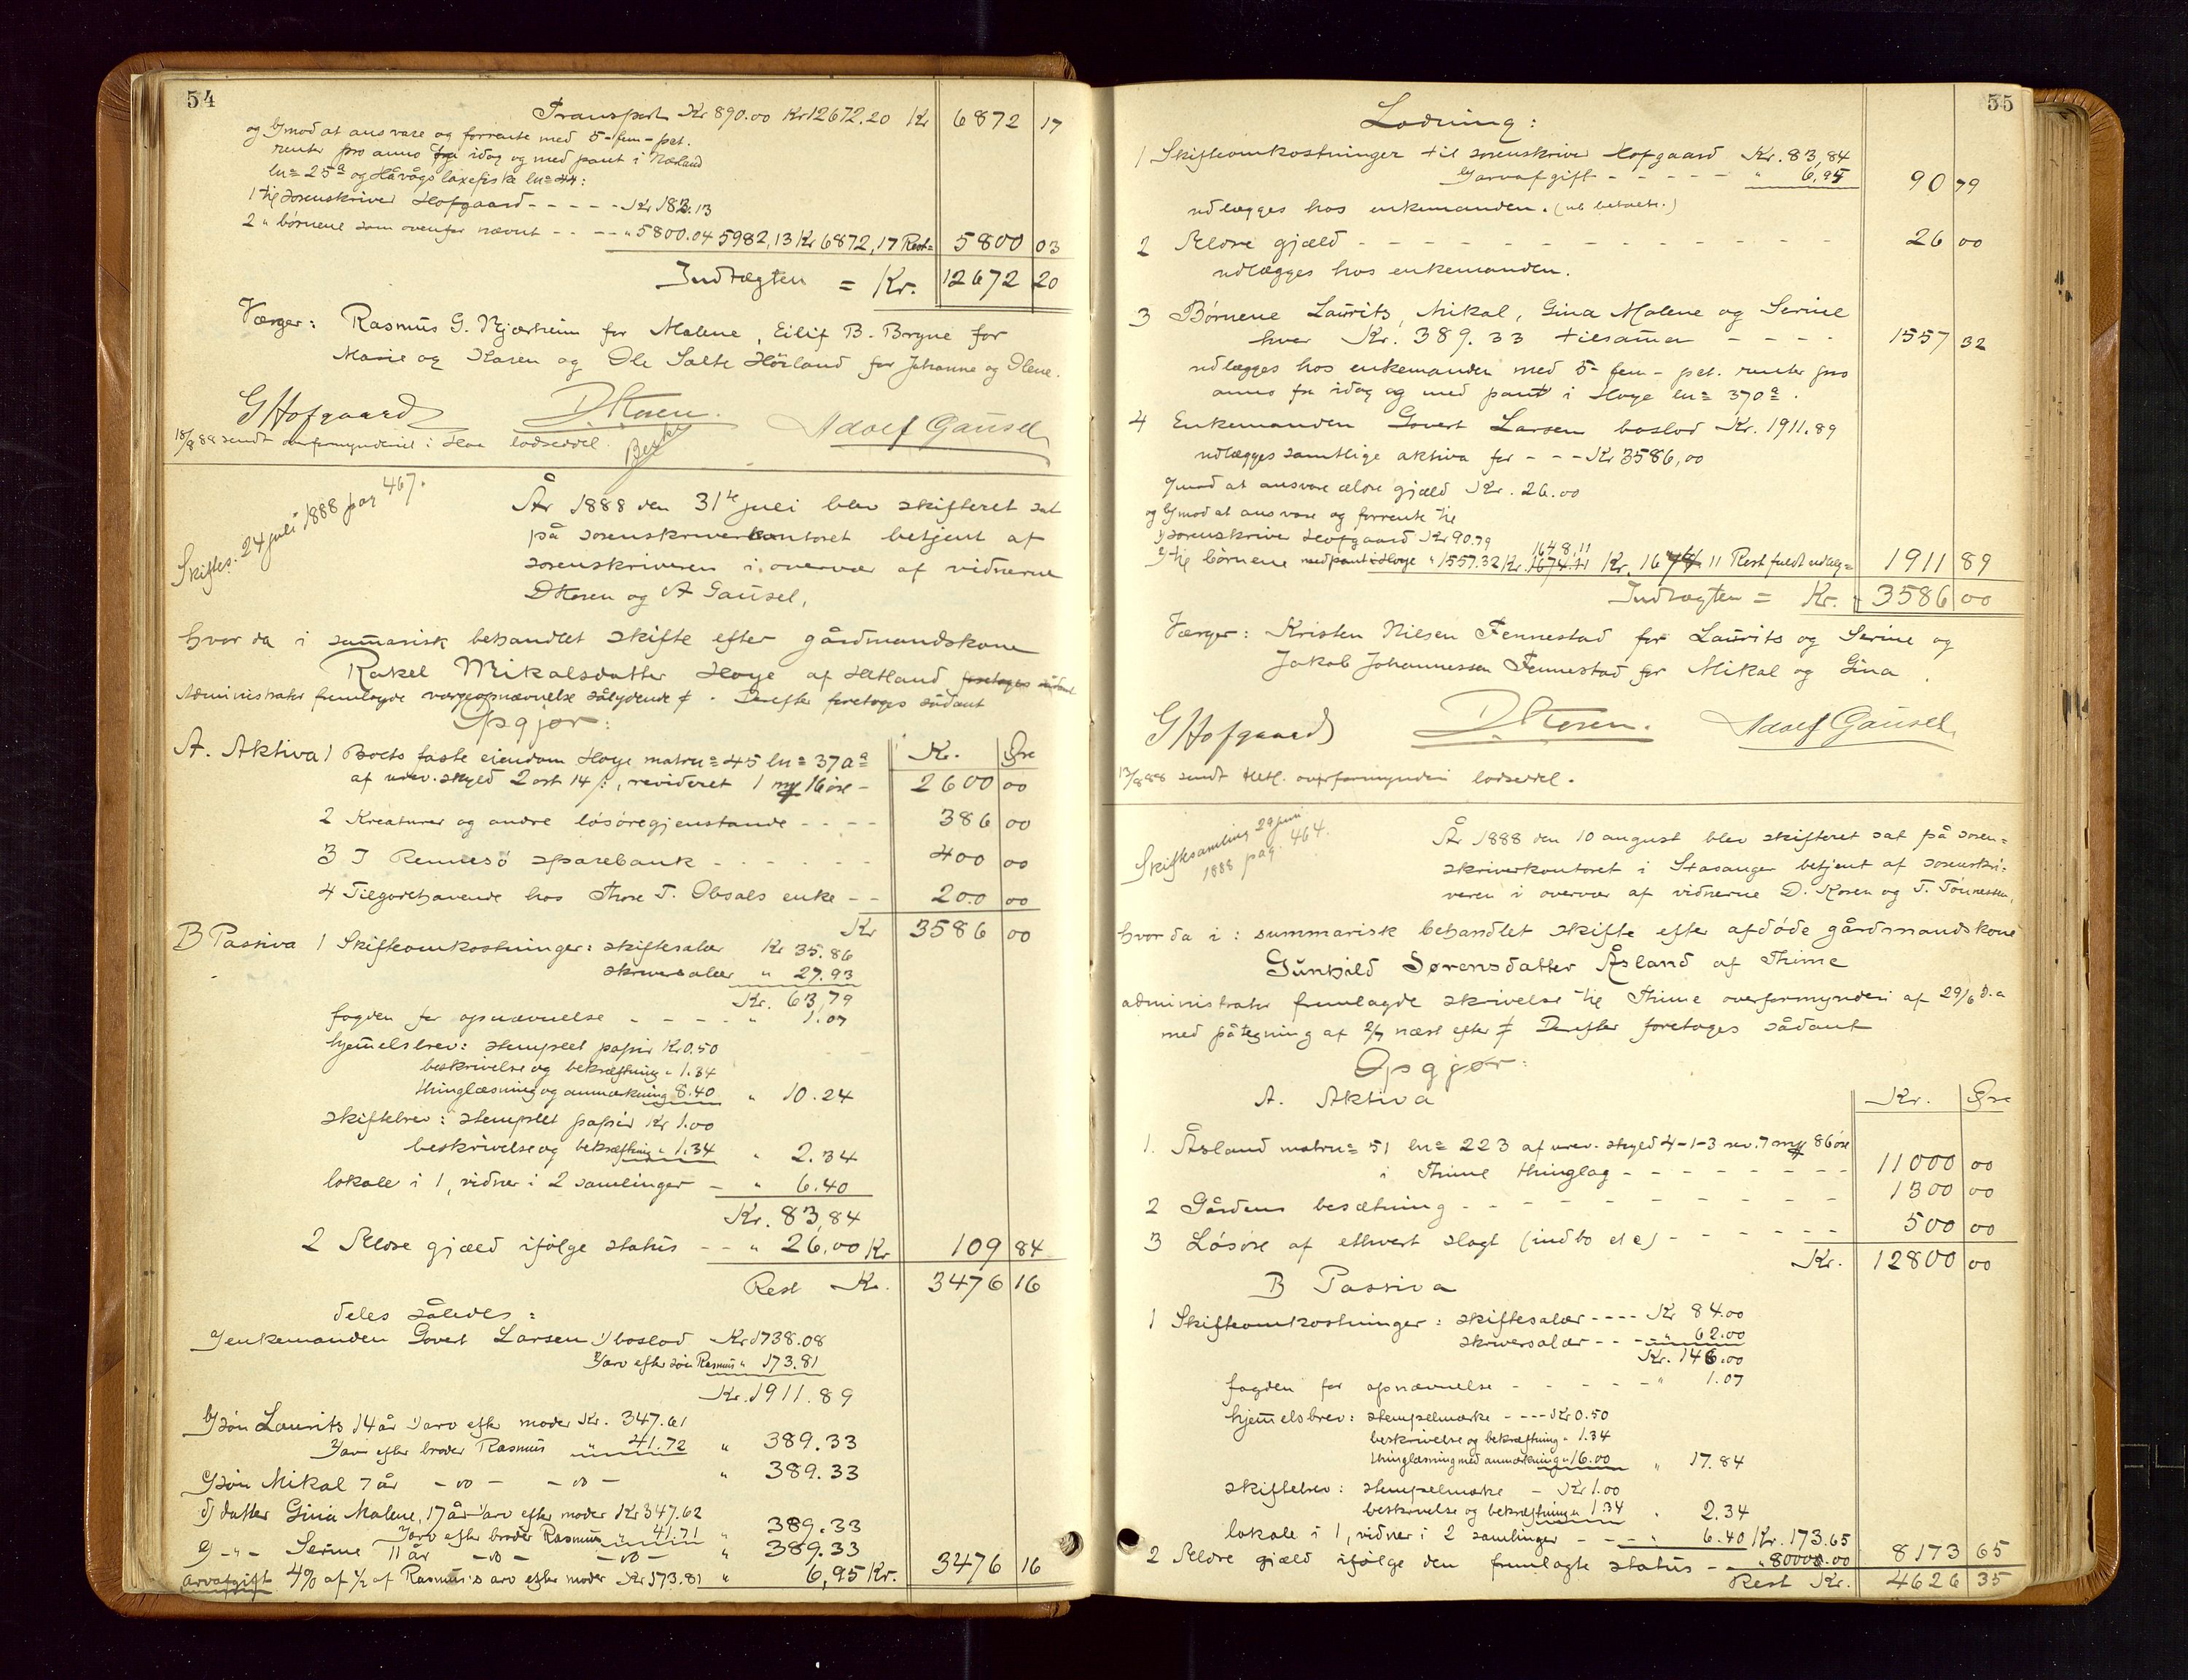 54
Transport Kr 890.00 Kr 12672.20 Kr 6872 17
og b) mod at ansvare og forrente med 5-fem-pct.
renter pro anno fra idag og med pant i Nærland
ln= 25a og Håvågs laxefiske ln= 44:
1 til sorenskriver Hofgaard - - - - - Kr 182.13
2 " børnene som ovenfor nævnt - - - - " 5800.04 5982,13 Kr 6872,17 Rest = 5800 03
Indtægten = Kr. 12672 20
Værger: Rasmus G. Njærheim for Malene, Eilif B. Bryne for
Marie og Karen og Ole Salte Hörland for Johanne og Olene.
G Hofgaard D. Kosen. Adolf Gausel
18/8 88 sendt overformynderiet i Haa lodseddel.
Skiftes. 24 juli 1888 pag 467.
År 1888 den 31te juli blev skifteret sat
på sorenskriverkontoret betjent af
sorenskriveren i overvær af vidnerne
D Kosen og A Gausel,
hvor da i summarisk behandlet skifte efter gårdmandskone
Rakel Mikalsdatter Hoye af Hetland foretoges sådant
Administrator fremlagde værgeopnævnelse sålydende ⨍. Derefter foretoges sådant
Opgjør:
A. Aktiva 1 Boets faste eiendom Hoye matrn= 45 ln= 370a Kr. Øre
af urev. skyld 2 ort 14 ß, revideret 1 my 16 öre - 2600 00
2 Kreaturer og andre løsøregjenstande - - - - 386 00
3 I Rennesö sparebank - - - - - - 400 00
4 Tilgodehavende hos Thore T. Obsals enke - - 200 00
Kr 3586 00
B Passiva 1 Skifteomkostninger: skiftesalær Kr 35.86
skriversalær " 27.93
Kr. 63,79
fogden for opnævnelse - - - - " 1.07
hjemmelsbrev: stemplet papir Kr 0.50
beskrivelse og bekræftning " 1.34
thinglæsning og anmærkning 8.40 " 10.24
skiftebrev: stemplet papir Kr 1.00
beskrivelse og bekræftning " 1.34 " 2.34
lokale i 1, vidner i 2 samlinger - " 6.40
Kr. 83,84
2 Ældre gjæld ifölge status - - " 26,00 Kr 109 84
Rest Kr. 3476 16
deles således:
a) enkemanden Govert Larsen 1) boslod Kr 1738.08
2) arv efter sön Rasmus " 173.81
Kr. 1911.89
b) sön Laurits 14 år 1) arv efter moder Kr. 347.61
2) arv efter broder Rasmus " 41.72 " 389.33
c) sön Mikal 7 år - " - - " - " 389.33
d) datter Gina Malene, 17 år 1) arv efter moder Kr 347.62
2) arv efter broder Rasmus " 41.71 " 389.33
e) - " - Serine 11 år - " - - " - " 389.33
arvafgift 4% af ½ af Rasmus's arv efter moder Kr 173.81 " 6,95 Kr. 3476 16
55
Lodning:
1 Skifteomkostninger til sorenskriver Hofgaard Kr. 83,84
b) arvafgift - - - - - " 6,95 90 79
udlægges hos enkemanden. (ub betalt.)
2 Ældre gjæld - - - - - - - - - - - - 26 00
udlægges hos enkemanden.
3 Børnene Laurits, Mikal, Gina Malene og Serine
hver Kr. 389.33 tilsammen - - - - 1557 32
udlægges hos enkemanden med 5-fem-pct. renter pro
anno fra idag og med pant i Hoye ln= 370a.
4 Enkemanden Govert Larsen boslod Kr. 1911.89
udlægges samtlige aktiva for - - - Kr 3586,00
a) mod at ansvare ældre gjæld Kr. 26.00
og b) mod at ansvare og forrente til
1) sorenskriver Hofgaard Kr 90.79
2) til børnene med pant i Hoye " 1557.32 Kr. 1674.11 1648.11 Kr. 1674.11 Rest fuldt udlæg = 1911 89
Indtægten = Kr. 3586 00
Værger: Kristen Nilsen Fennestad for Laurits og Serine og
Jakob Johannessen Fennestad for Mikal og Gina.
G Hofgaard D. Kosen. Adolf Gausel.
13/8 88 sendt Hetl. overformynderi lodseddel.
Skiftesamling 29 juni
1888 pag. 464.
År 1888 den 10 august blev skifteret sat på soren-
skriverkontoret i Stavanger betjent af sorenskri-
veren i overvær af vidnerne D. Kosen og T. Tönnessen,
hvor da i: summarisk behandlet skifte efter afdøde gårdmandskone
Gunhild Sørensdatter Åsland af Thime
administrator fremlagde skrivelse til Thime overformynderi af 29/6 d.a
med påtegning af 2/7 næst efter ⨍ Derefter foretoges sådant
Opgjør:
A. Aktiva Kr. Øre
1. Åsland matrn= 51 ln= 223 af urev. skyld 4-1-3 rev. 7 my 86 öre
i Thime thinglag - - - - - - - - 11000 00
2 Gårdens besætning - - - - - - - - - 1300 00
3 Løsöre af ethvert slagt (indbo etc) - - - - - - 500 00
Kr. 12800 00
B Passiva
1 Skifteomkostninger: skiftesalær - - - - Kr 84.00
skriversalær - - - " 62.00
Kr. 146.00
fogden for opnævnelse - - - - - - " 1.07
hjemmelsbrev: stempelmærke - - - - Kr 0.50
beskrivelse og bekræftning " 1.34
thinglæsning med anmærkning " 16.00 " 17.84
skiftebrev: stempelmærke - Kr 1.00
beskrivelse og bekræftning " 1.34 " 2.34
lokale i 1, vidner i 2 samlinger - - - " 6.40 Kr. 173.65
2 Ældre gjæld ifölge den fremlagte status - - " 8000.00 8173 65
Rest Kr. 4626 35